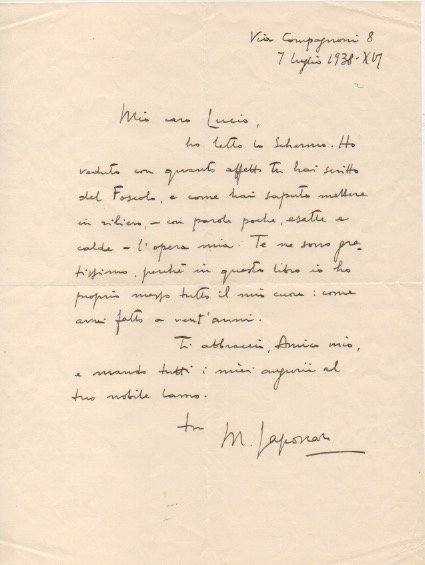 Via Compagnoni 8
7 luglio 1938-XVI
Mio caro Lucio,
ho letto lo Schermo. Ho
veduto con quanto affetto tu hai scritto
del Foscolo, e come hai saputo mettere
in rilievo, - con parole poche, esatte e
calde - l'opera mia. Te ne sono gra-
tissimo, perchè in questo libro io ho
proprio messo tutto il mio cuore: come
avrei fatto a vent'anni.
Ti abbraccio, Amico mio,
e mando tutti i miei augurii al
tuo nobile lavoro.
tuo
M. Saponaro